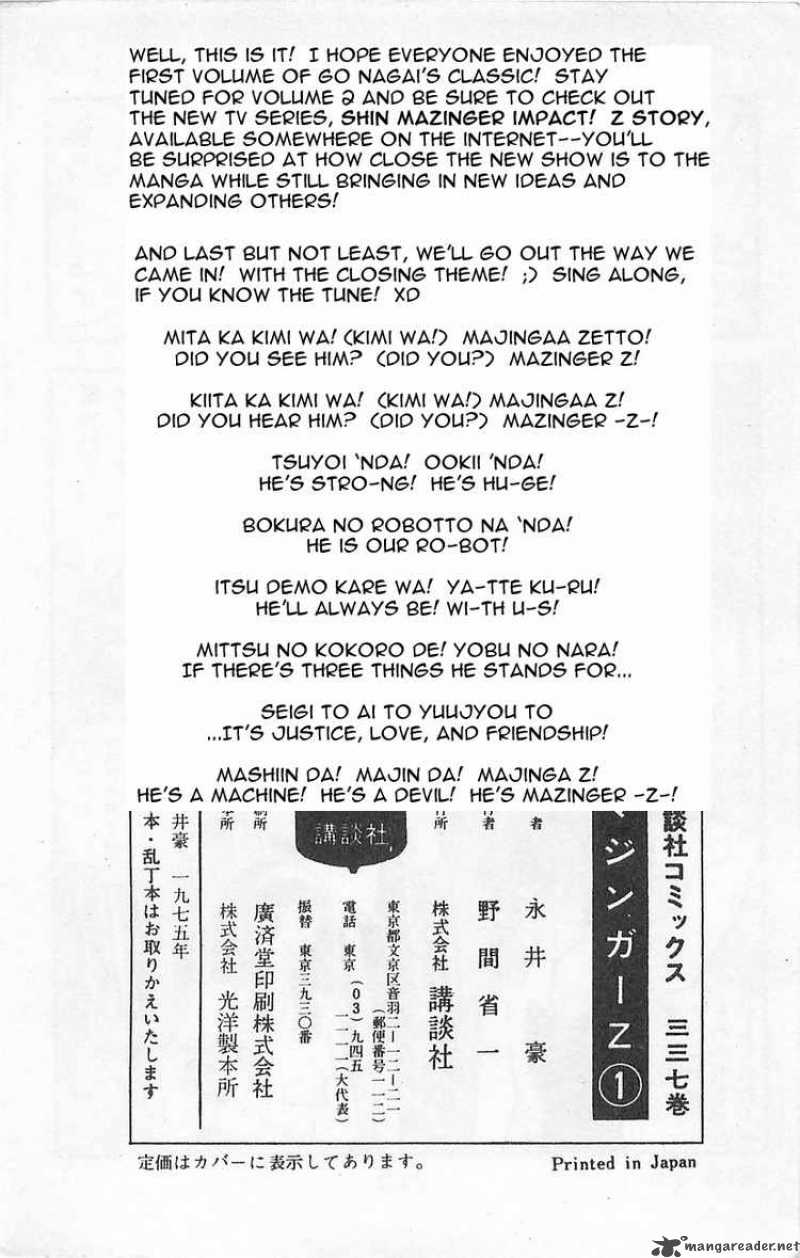 WELL, THIS IS IT! I HOPE EVERYONE ENJOYED THE
FIRST VOLUME OF GO NAGAI'S CLASSIC! STAY
TUNED FOR VOLUME 2 AND BE SURE TO CHECK OUT
THE NEW TV SERIES, SHIN MAZINGER IMPACT! Z STORY,
AVAILABLE SOMEWHERE ON THE INTERNET--YOU'LL
BE SURPRISED AT HOW CLOSE THE NEW SHOW IS TO THE
MANGA WHILE STILL BRINGING IN NEW IDEAS AND
EXPANDING OTHERS!
AND LAST BUT NOT LEAST, WE'LL GO OUT THE WAY WE
CAME IN! WITH THE CLOSING THEME! ;) SING ALONG,
IF YOU KNOW THE TUNE! XD
MITA KA KIMI WA! (KIMI WA!) MAJINGAA ZETTO!
DID YOU SEE HIM? (DID YOU?) MAZINGER Z!
KIITA KA KIMI WA! (KIMI WA!) MAJINGAA Z!
DID YOU HEAR HIM? (DID YOU?) MAZINGER -Z-!
TSUYOI 'NDA! OOKII 'NDA!
HE'S STRO-NG! HE'S HU-GE!
BOKURA NO ROBOTTO NA 'NDA!
HE IS OUR RO-BOT!
ITSU DEMO KARE WA! YA-TTE KU-RU!
HE'LL ALWAYS BE! WI-TH U-S!
MITTSU NO KOKORO DE! YOBU NO NARA!
IF THERE'S THREE THINGS HE STANDS FOR...
SEIGI TO AI TO YUUJYOU TO
...IT'S JUSTICE, LOVE, AND FRIENDSHIP!
MASHIIN DA! MAJIN DA! MAJINGA Z!
HE'S A MACHINE! HE'S A DEVIL! HE'S MAZINGER -Z-!
談社コミックス 三三七巻
ジンガーZ①
者 永井豪
者 野間省一
所 株式会社 講談社
東京都文京区音羽二-一二-二一
(郵便番号一一二)
電話 東京(03)九四五
一一一一(大代表)
振替 東京三九三〇番
講談社
所 廣済堂印刷株式会社
所 株式会社 光洋製本所
井豪 一九七五年
本・乱丁本はお取りかえいたします
定価はカバーに表示してあります。
Printed in Japan
mangareader.net